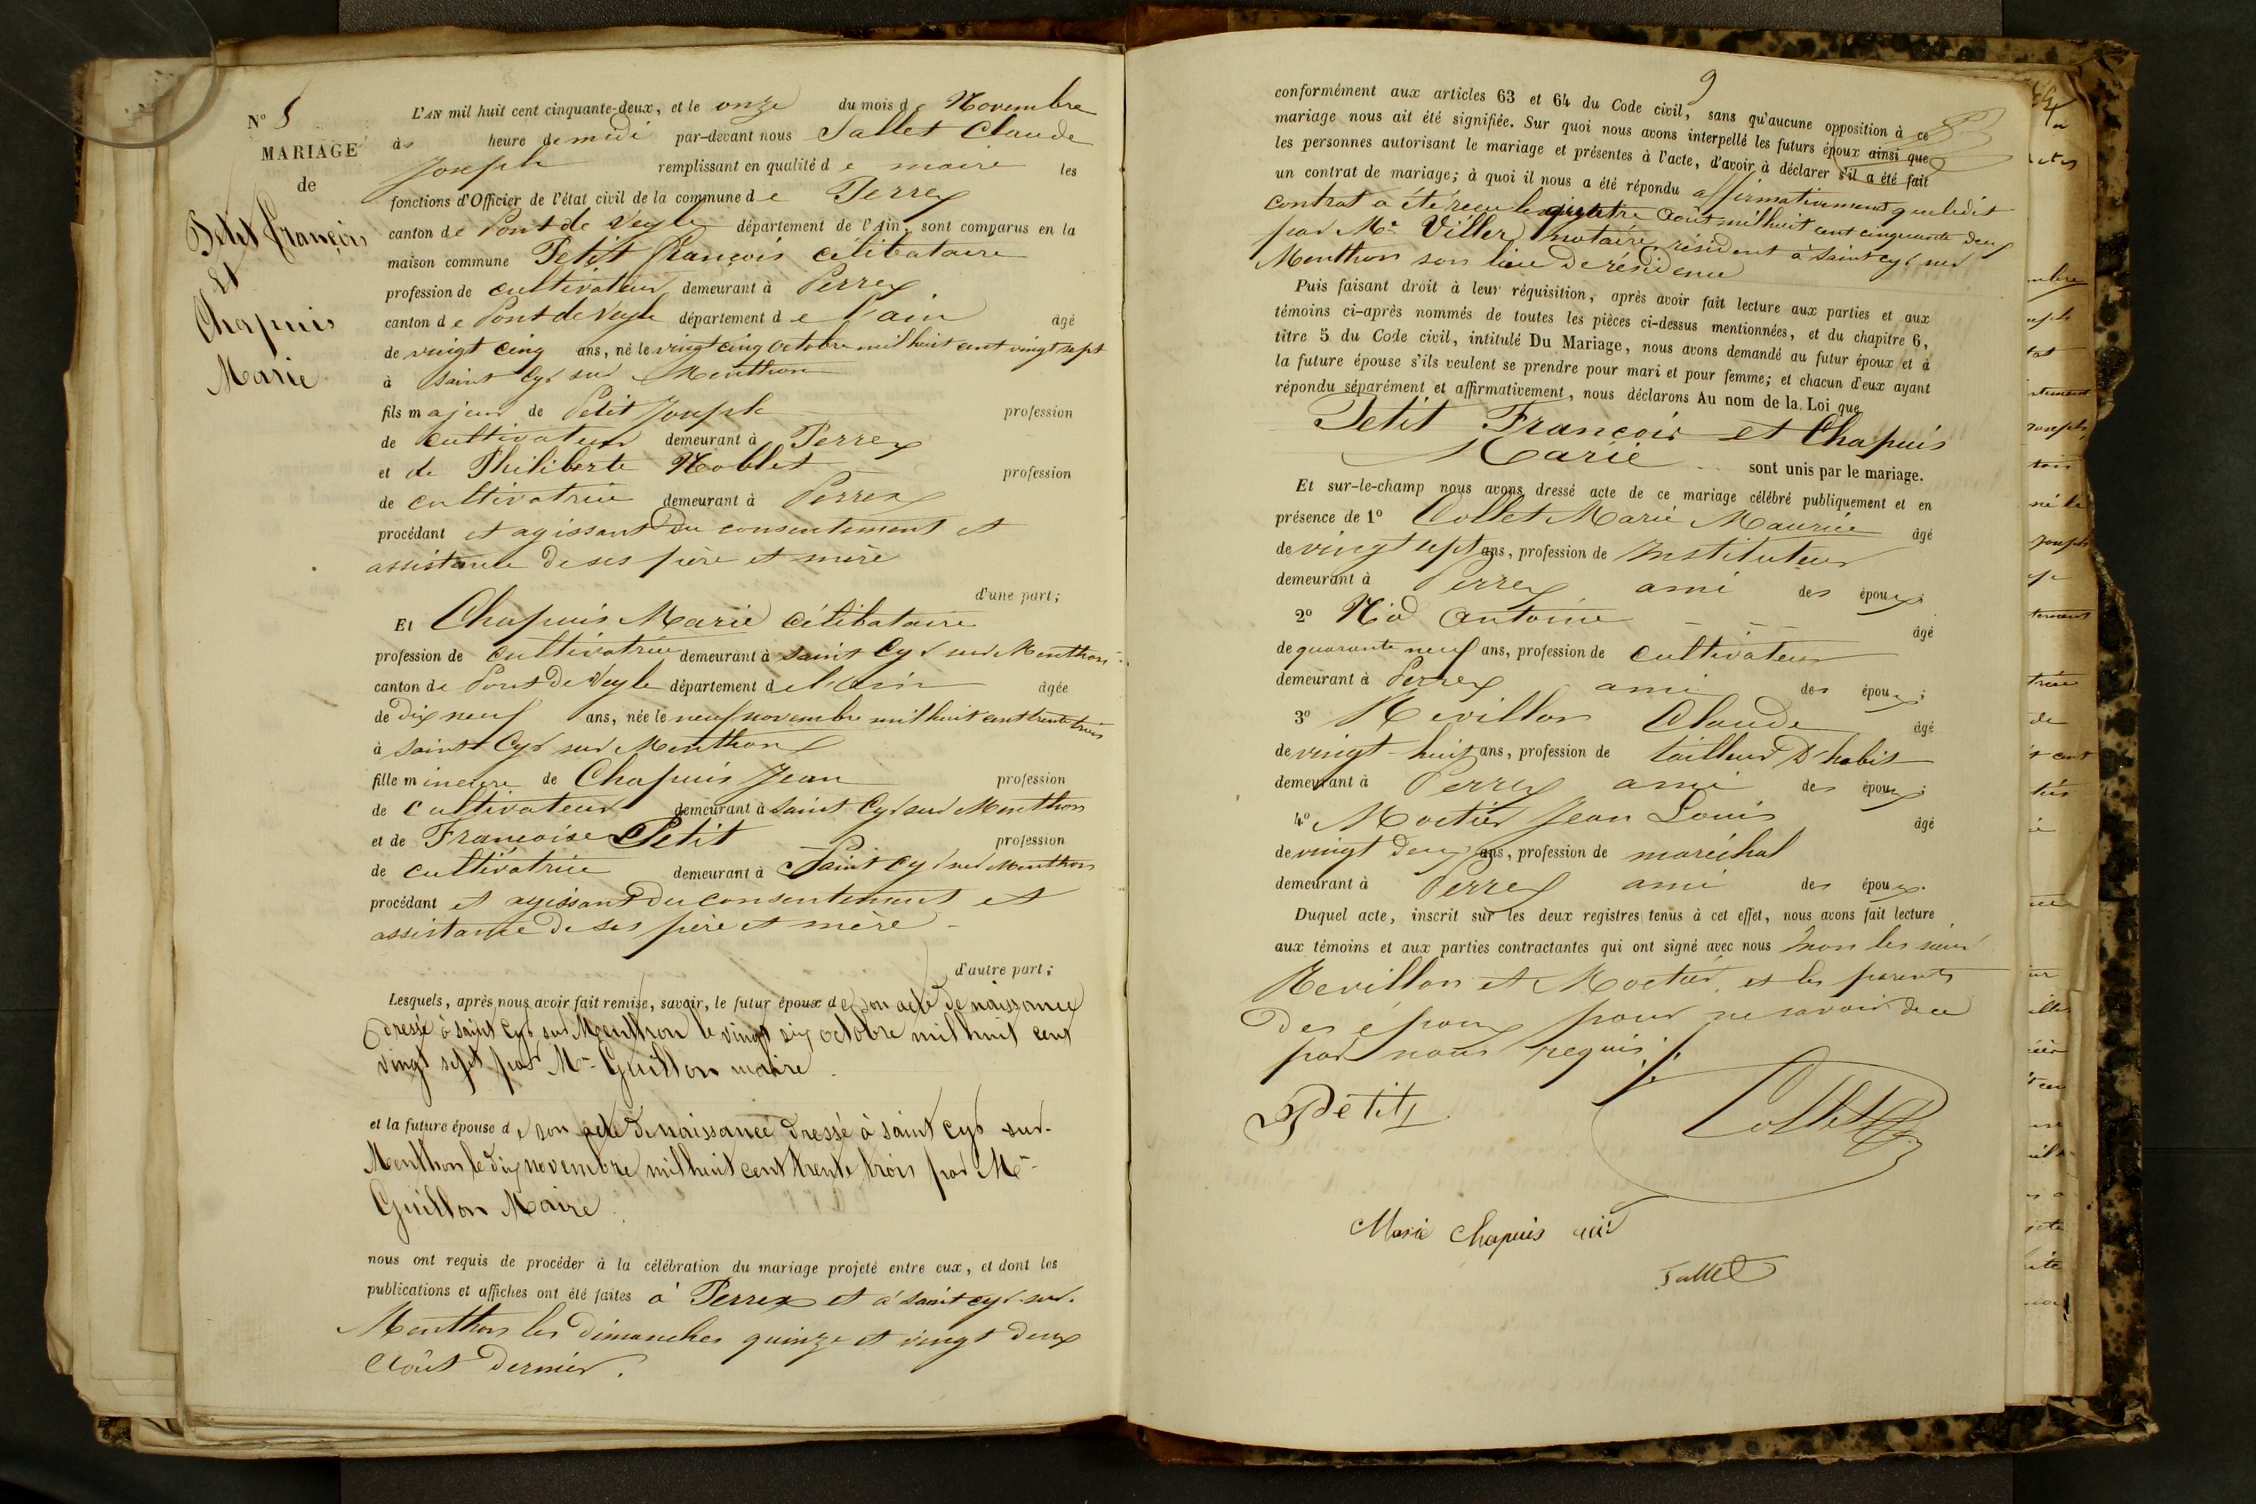 N° 8
MARIAGE
de
Petit françois
Et
Chapuis
Marie
L'AN mil huit cent cinquante-deux, et le onze du mois de Novembre
à heure de midi par-devant nous Tallet Claude
Joseph remplissant en qualité de maire les
fonctions d'Officier de l'état civil de la commune de Perrex
canton de Pont de Veyle département de l'Ain, sont comparus en la
maison commune Petit françois célibataire
profession de cultivateur demeurant à Perrex
canton de Pont de Veyle département de l'ain âgé
de vingt cinq ans, né le vingt cinq octobre mil huit cent vingt sept
à saint Cyr sur Menthon
fils majeur de Petit Joseph profession
de cultivateur demeurant à Perrex
et de Philiberte Noblet profession
de cultivatrice demeurant à Perrex
procédant et agissant du consentement et
assistance de ses père et mère
d'une part;
Et Chapuis Marie célibataire
profession de cultivatrice demeurant à saint Cyr sur Menthon
canton de Pont de Veyle département de l'ain âgée
de dix neuf ans, née le neuf novembre mil huit cent trente trois
à saint Cyr sur Menthon
fille mineure de Chapuis Jean profession
de cultivateur demeurant à saint Cyr sur Menthon
et de Françoise Petit profession
de cultivatrice demeurant à Saint Cyr sur Menthon
procédant et agissant du consentement et
assistance de ses père et mère
d'autre part;
Lesquels, après nous avoir fait remise, savoir, le futur époux de son acte de naissance
dressé à saint Cyr sur Menthon le vingt six octobre mil huit cent
vingt sept par Mr Guillon maire.
et la future épouse de son acte de naissance dressé à saint Cyr sur
Menthon le dix novembre mil huit cent trente trois par Mr
Guillon Maire.
nous ont requis de procéder à la célébration du mariage projeté entre eux, et dont les
publications et affiches ont été faites à Perrex et à saint cyr sur
Menthon les dimanches quinze et vingt deux
Août dernier.
9
conformément aux articles 63 et 64 du Code civil, sans qu'aucune opposition à ce
mariage nous ait été signifiée. Sur quoi nous avons interpellé les futurs époux ainsi que
les personnes autorisant le mariage et présentes à l'acte, d'avoir à déclarer s'il a été fait
un contrat de mariage; à quoi il nous a été répondu affirmativement que ledit
contrat a été reçu le quatre Août mil huit cent cinquante deux
par Me Viller notaire résident à saint cyr sur
Menthon son lieu de résidence
Puis faisant droit à leur réquisition, après avoir fait lecture aux parties et aux
témoins ci-après nommés de toutes les pièces ci-dessus mentionnées, et du chapitre 6,
titre 5 du Code civil, intitulé Du Mariage, nous avons demandé au futur époux et à
la future épouse s'ils veulent se prendre pour mari et pour femme; et chacun d'eux ayant
répondu séparément et affirmativement, nous déclarons Au nom de la Loi que
Petit François et Chapuis
Marie sont unis par le mariage.
Et sur-le-champ nous avons dressé acte de ce mariage célébré publiquement et en
présence de 1° Collet Marie Maurice âgé
de vingt sept ans, profession de Instituteur
demeurant à Perrex ami des époux;
2° Nid antoine âgé
de quarante neuf ans, profession de cultivateur
demeurant à Perrex ami des époux;
3° Revillon Claude âgé
de vingt-huit ans, profession de tailleur D'habit
demeurant à Perrex ami des époux;
4° Moctier Jean Louis âgé
de vingt deux ans, profession de maréchal
demeurant à Perrex ami des époux.
Duquel acte, inscrit sur les deux registres tenus à cet effet, nous avons fait lecture
aux témoins et aux parties contractantes qui ont signé avec nous non les sieurs
Revillon et Moctier, et les parents
des époux pour ne savoir de ce
par nous requis.
Petit
Collet
Marie Chapuis
Tallet